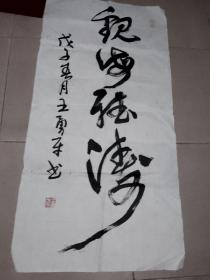 观海听涛
戊子春月王勇平书